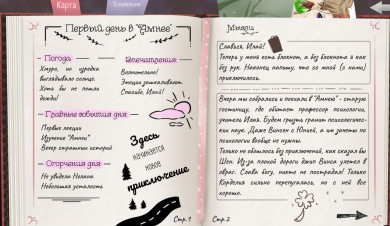 Карта
Оглавление
Первый день в "Амнее"
Погода
Хмуро, но изредка
выглядывало солнце.
Хоть бы не пошли
дожди!
Впечатления
Волнительно!
Эмоции зашкаливают.
Спасибо, Илай!
Главные события дня
Первые лекции
Изучение "Амнеи"
Вечер страшных историй
Огорчения дня
Не увидела Нолана
Небольшая усталость
Здесь
начинается
новое
приключение
Стр. 1
Мысли
Славься, Илай!
Теперь у меня есть блокнот, а без блокнота я как
без рук. Наконец напишу, что со мной (с нами)
приключилось.
Вчера мы собрались и поехали в "Амнею" - старую
гостиницу, где обитает профессор психологии,
учитель Илая. Будем грызть гранит психологичес-
ких наук. Даже Винсен с Юной, а им зачеты по
психологии вообще не нужны.
Только не обошлось без приключений, как сказал бы
Шен. Из-за плохой дороги джип Винса улетел в
овраг. Слава богу, никто не пострадал! Только
Корделия сильно перепугалась, но с ней все
хорошо.
Стр. 2